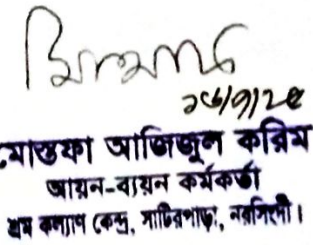 ১৬/৭/২৫
মোস্তফা আজিজুল করিম
আয়ন-ব্যয়ন কর্মকর্তা
শ্রম কল্যাণ কেন্দ্র, সাটিরপাড়া, নরসিংদী।